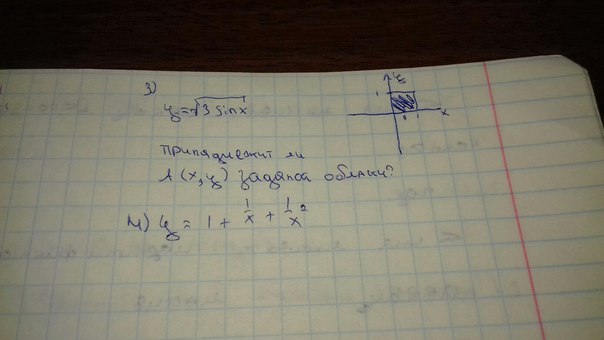 3)
y = √3 sin x
y
1
0 1
x
принадлежит ли
A (x, y) заданой области?
4) y = 1 + 1/x + 1/x²